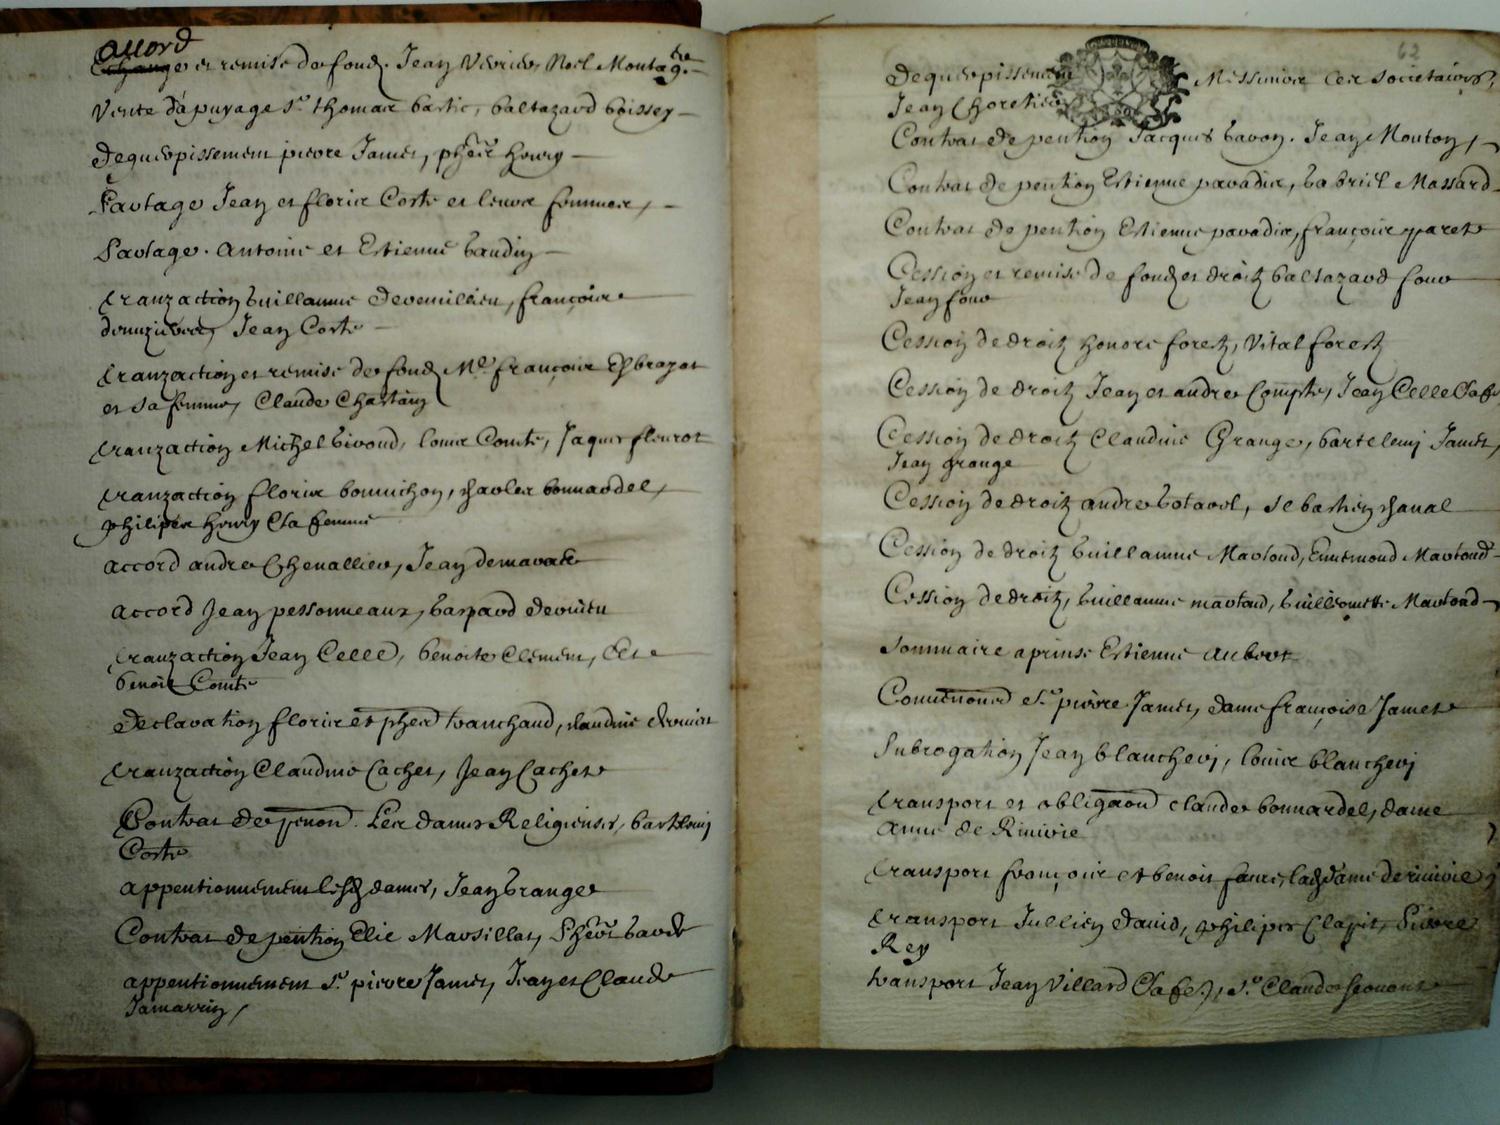 accord
Eschange et remise de fondz. Jean Verrier, Noel Montag.ne
Vente d'apuyage Sr thomas bastie, baltazard boissey
Deguerpissement pierre Jamet, pher henry
Partage Jean et florie Coste et leurs femmes,
Partage. Antoine et Estienne baudin
tranzaction Guillaume , françois
Jean Coste
tranzaction et remise de fondz Me françois
et sa femme, Claude Chastaing
tranzaction Michel Girond, louis Comte, Jaques fleurot
tranzaction florie bonnichon, charles bonnardel,
philipes henry & sa femme
accord andre Chevallier, Jean demavate
accord Jean pessonneaux, Gaspard deveriеu
tranzaction Jean Celle, benoite Clement, &
benoit Comte
declaration florie et pher tranchand, claudine
tranzaction Claudine Cachet, Jean Cachet
Contrat de p̃enon. Les dames Religieuses, bartelemj
Coste
appentionnement lesd dames, Jean Grange
Contrat de pention Elie Marsillat, Pher Gaude
appentionnement Sr pierre Jamet, Jean et Claude
Jamarrin,
63
Deguerpissement Messieurs les societaires,
Jean Choretier
Contrat de pention Jacques bavon. Jean Monton,
Contrat de pention Estienne paradis, Gabriel Massard
Contrat de pention Estienne paradis, françois paret
Cession et remise de fondz et droitz baltazard four
Jean four
Cession de droitz honore forestz, Vital forestz
Cession de droitz Jean et andre Compte, Jean Celle & sa fe
Cession de droitz Claudine Grange, bartelemj Jamet,
Jean grange
Cession de droitz andre Gotarel, sebastien chanal
Cession de droitz Guillaume Martoud, Ennemond Martoud
Cession de droitz, Guillaume martoud, Guillemette Martoud
Sommaire aprinse Estienne aubert
Conuenõns Sr pierre Jamet, dame françoise Jamet
Subrogation Jean blancherj, louis blancherj
transport et obligãon claude bonnardel, dame
anne de Riuirie
transport françois et benoit faure, lad dame de riuirie
transport Jullien dauid, philipes Clapit, Pierre
Rey
transport Jean Villard & sa fe., Sr Claude